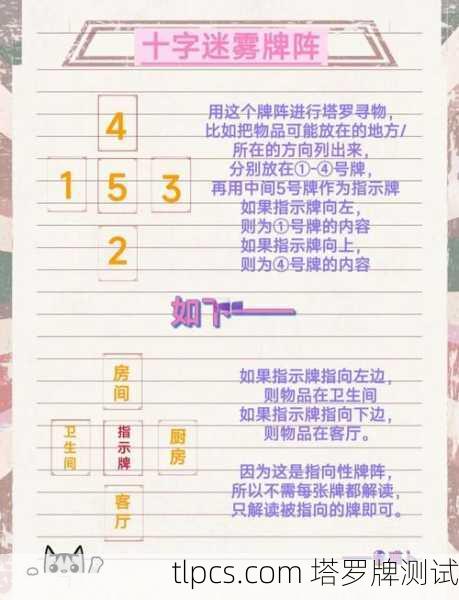 十字迷雾牌阵
4
1 5 3
2
用这个牌阵进行塔罗寻物，
比如把物品可能放在的地方/
所在的方向列出来，
分别放在①-④号牌，
再用中间5号牌作为指示牌
如果指示牌向左，
则为①号牌的内容
如果指示牌向上，
则为④号牌的内容
如下——
房间
卫生间 指示牌 厨房
客厅
如果指示牌指向左边，
则物品在卫生间
如果指示牌指向下边，
则物品在客厅。
因为这是指向性牌阵，
所以不需每张牌都解读，
只解读被指向的牌即可。
tlpcs.com 塔罗牌测试